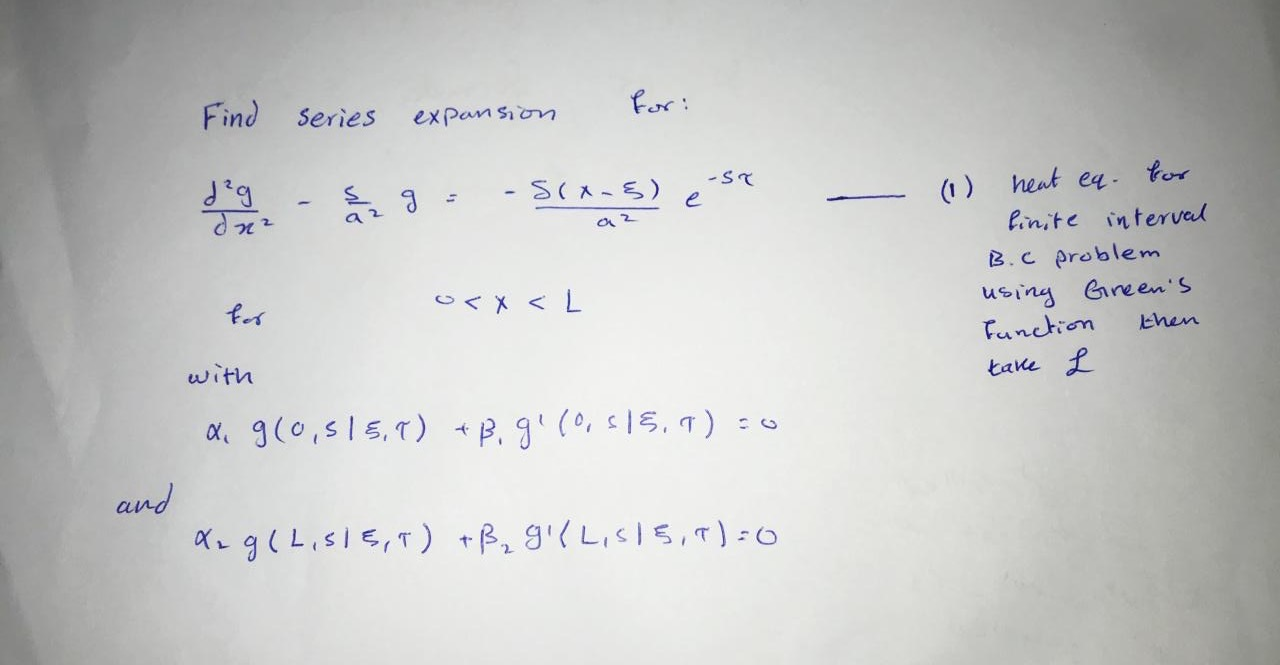 Find series expansion for:
d²g/dx² - s/a² g = - δ(x-ξ)/a² e^-sτ —— (1) heat eq. for
finite interval
B.C problem
using Green's
function then
take ℒ
for 0 < x < L
with
α₁ g(0,s|ξ,τ) + β₁ g'(0,s|ξ,τ) = 0
and
α₂ g(L,s|ξ,τ) + β₂ g'(L,s|ξ,τ) = 0